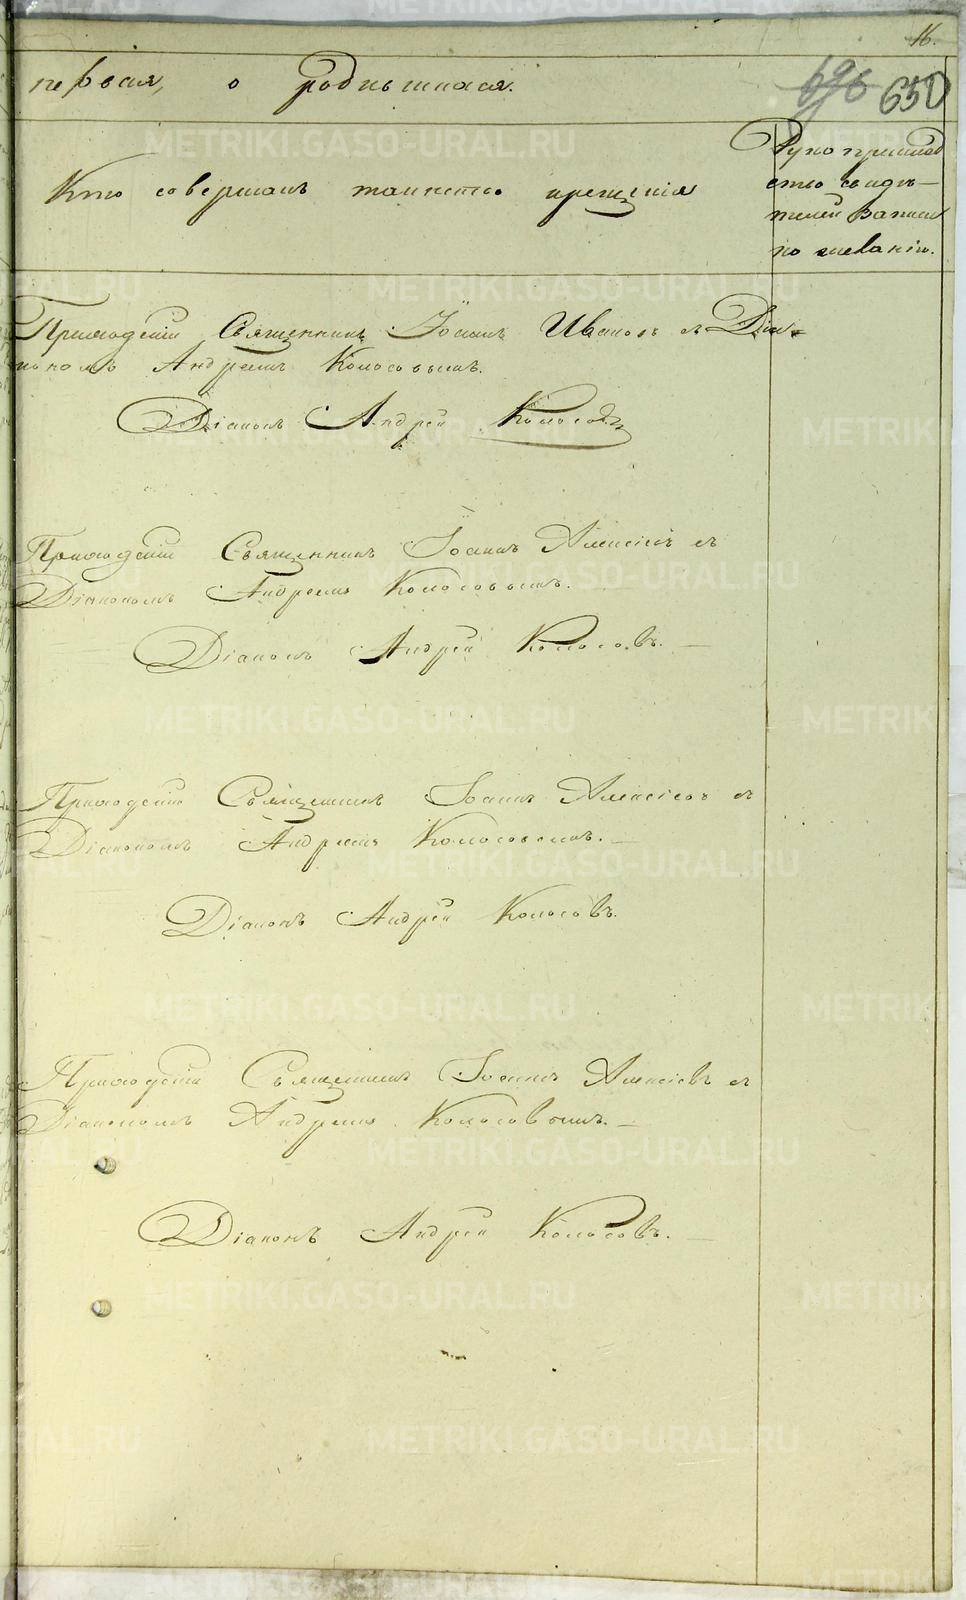 16.
696 650
первая, о родившихся.
Кто совершалъ таинство крещенія
Рукоприклад
ство свидѣ-
телей записи
по желанію.
Приходскій Священникъ Іоаннъ съ Діа-
кономъ Андреемъ Колосовымъ.
Діаконъ Андрей Колосовъ
Приходскій Священникъ Іоаннъ Алексіевъ съ
Діакономъ Андреемъ Колосовымъ.
Діаконъ Андрей Колосовъ.
Приходскій Священникъ Іоаннъ Алексіевъ съ
Діакономъ Андреемъ Колосовымъ.
Діаконъ Андрей Колосовъ.
Приходскій Священникъ Іоаннъ Алексіевъ съ
Діакономъ Андреемъ Колосовымъ.
Діаконъ Андрей Колосовъ.
METRIKI.GASO-URAL.RU